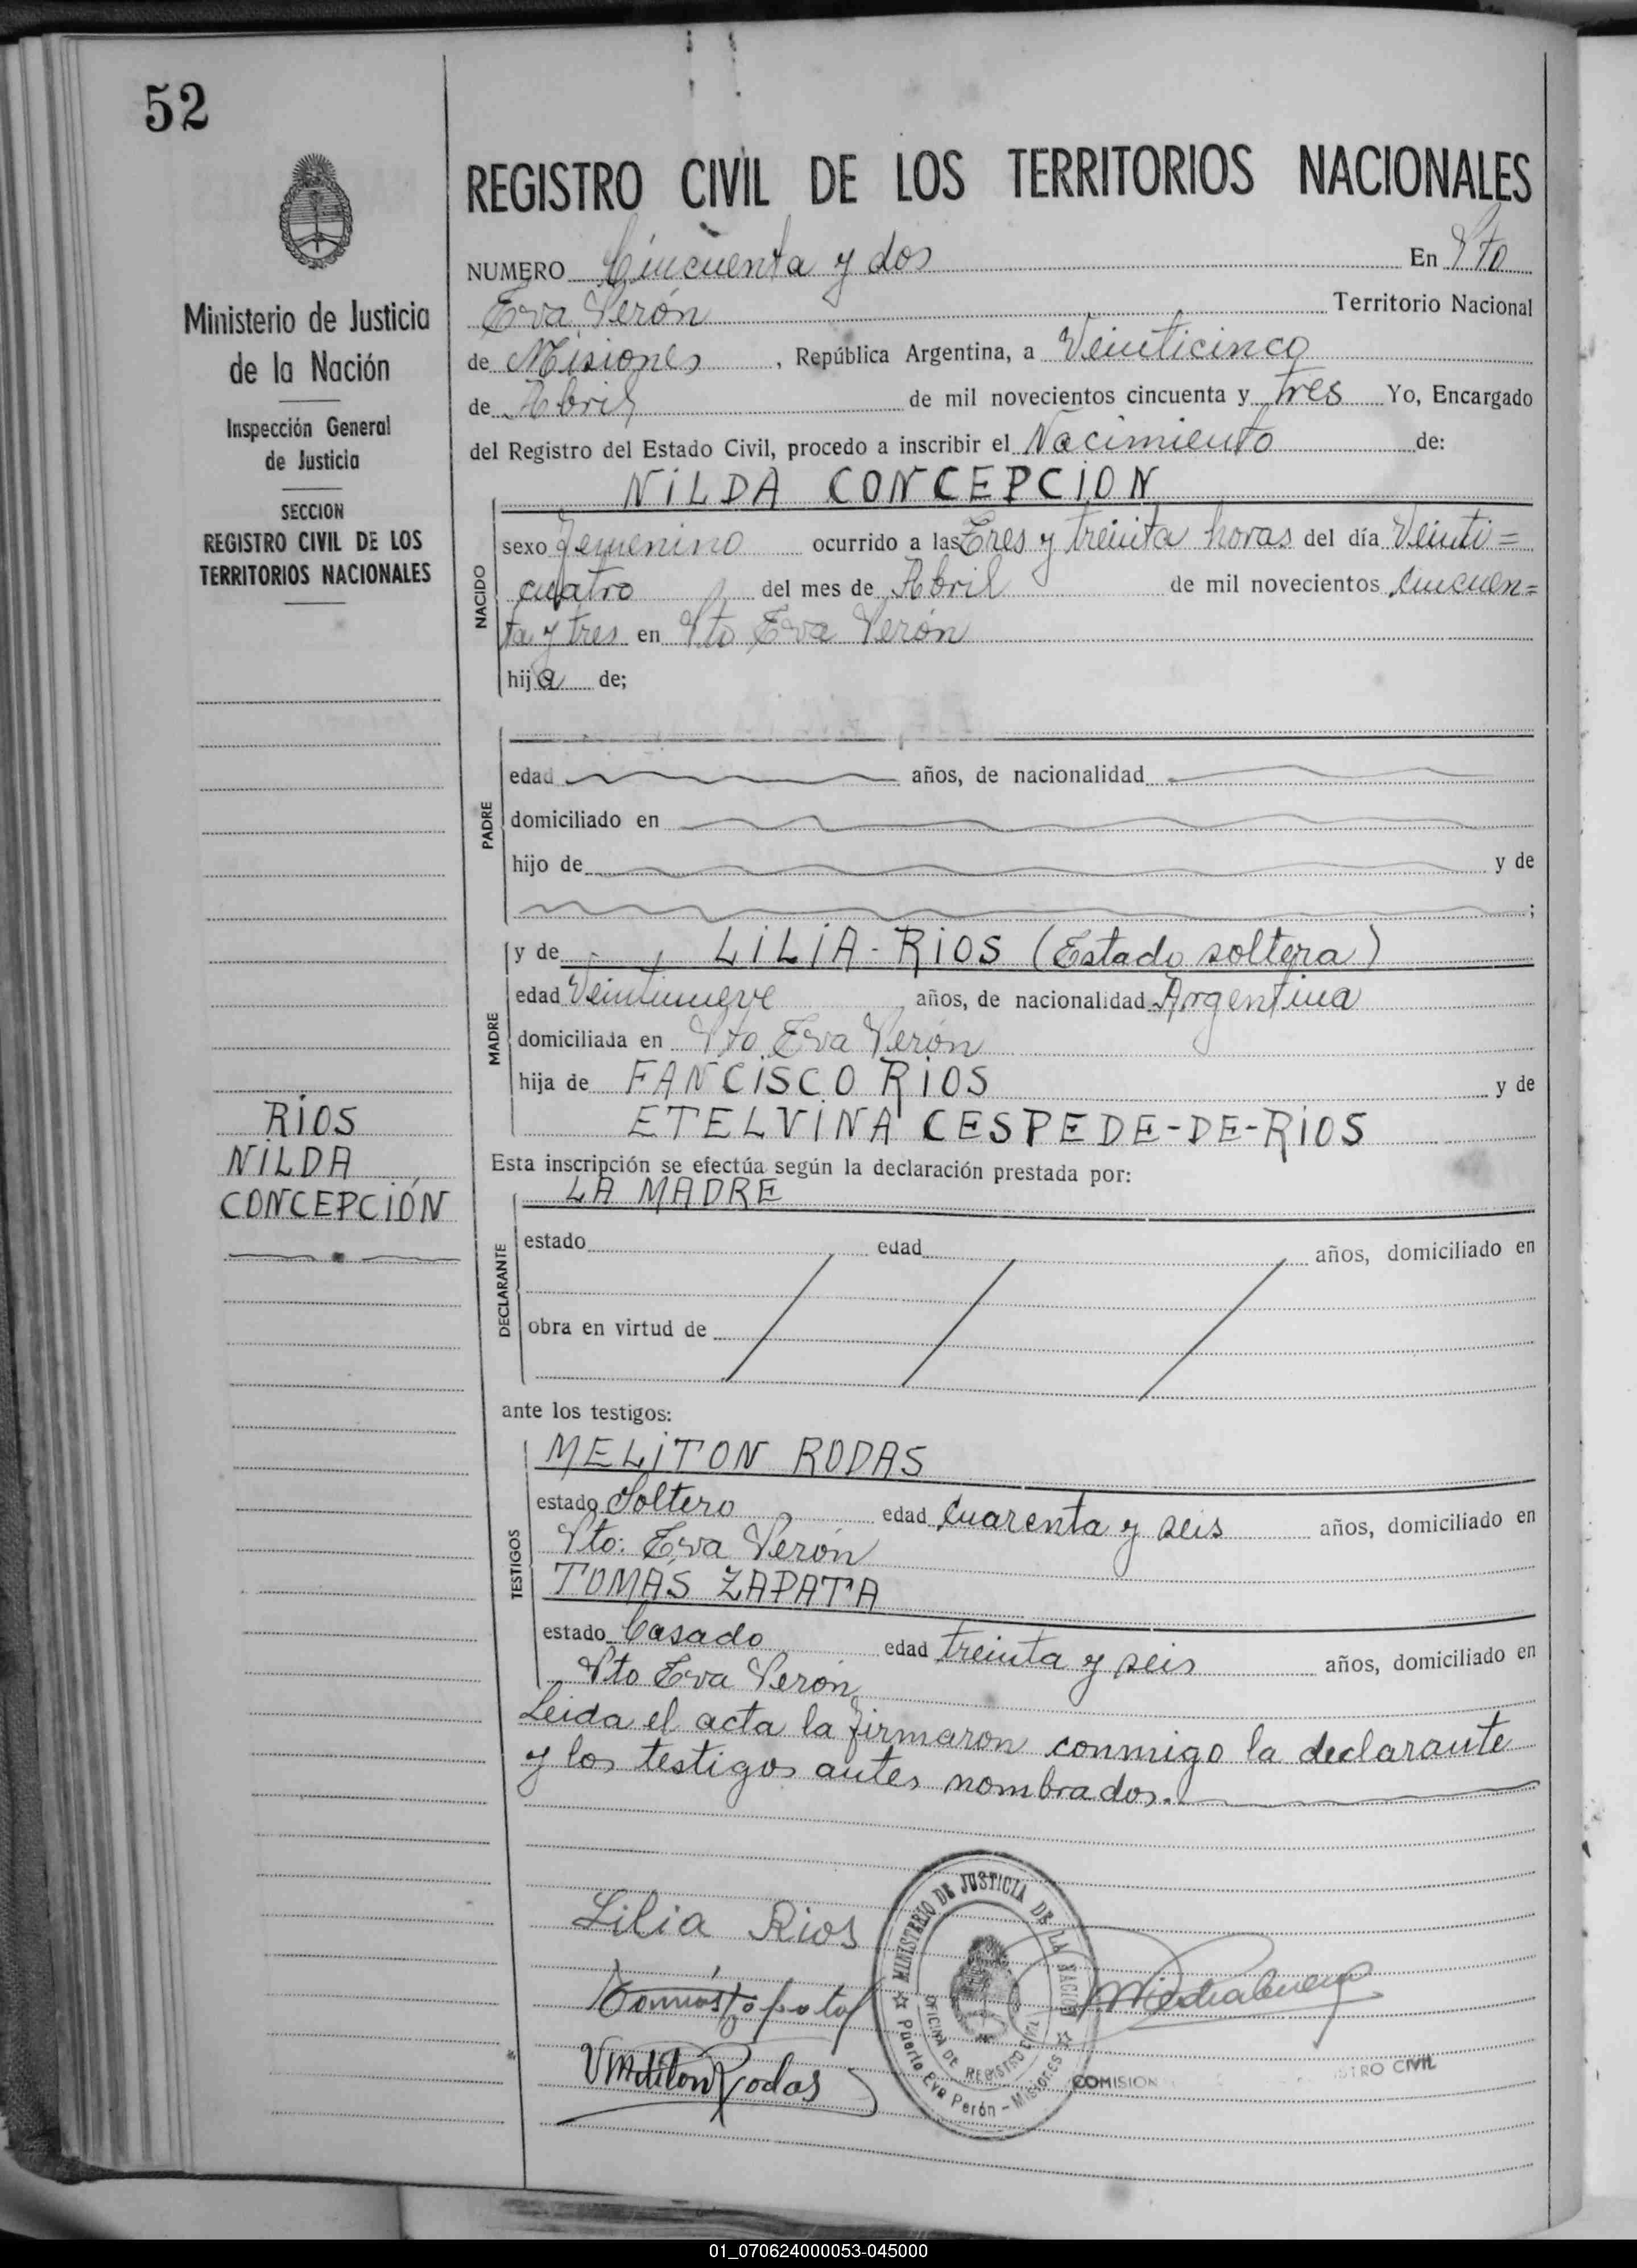 52
Ministerio de Justicia
de la Nación
Inspección General
de Justicia
SECCION
REGISTRO CIVIL DE LOS
TERRITORIOS NACIONALES
RÍOS
NILDA
CONCEPCIÓN
REGISTRO CIVIL DE LOS TERRITORIOS NACIONALES
NUMERO Cincuenta y dos En Pto
Eva Perón Territorio Nacional
de Misiones, República Argentina, a Veinticinco
de Abril de mil novecientos cincuenta y tres Yo, Encargado
del Registro del Estado Civil, procedo a inscribir el Nacimiento de:
NILDA CONCEPCION
NACIDO
sexo femenino ocurrido a las Tres y treinta horas del día Veinti=
cuatro del mes de Abril de mil novecientos cincuen=
ta y tres en Pto Eva Perón
hija de;
PADRE
edad años, de nacionalidad
domiciliado en
hijo de y de
;
MADRE
y de LILIA - RIOS (Estado soltera)
edad Veintinueve años, de nacionalidad Argentina
domiciliada en Pto. Eva Perón
hija de FANCISCO RIOS y de
ETELVINA CESPEDE-DE-RIOS
Esta inscripción se efectúa según la declaración prestada por:
LA MADRE
DECLARANTE
estado edad años, domiciliado en
obra en virtud de
ante los testigos:
TESTIGOS
MELITON RODAS
estado Soltero edad cuarenta y seis años, domiciliado en
Pto: Eva Perón
TOMÁS ZAPATA
estado Casado edad treinta y seis años, domiciliado en
Pto Eva Perón
Leida el acta la firmaron conmigo la declarante
y los testigos antes nombrados.
Lilia Rios
Tomás Zapata
Meliton Rodas
MINISTERIO DE JUSTICIA DE LA NACION
OFICINA DE REGISTRO CIVIL
Puerto Eva Perón - Misiones
COMISION
STRO CIVIL
01_070624000053-045000